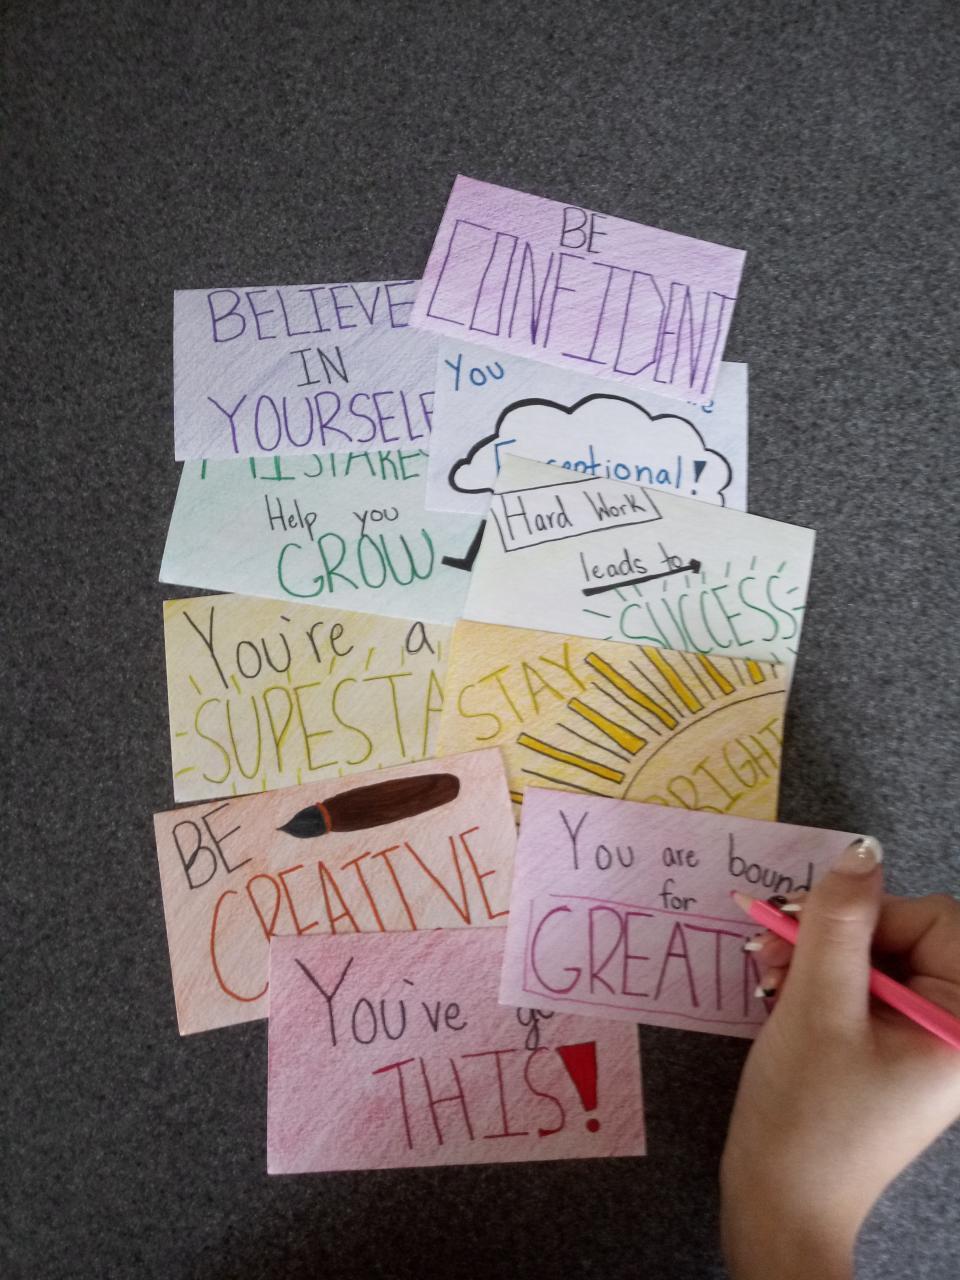 BE
CONFIDENT
BELIEVE
IN
YOURSELF
You
Exceptional!
MISTAKES
Help you
GROW
Hard Work
leads to
SUCCESS
You're a
SUPESTA
STAY
BRIGHT
BE
CREATIVE
You are bound
for
GREATN
You've go
THIS!